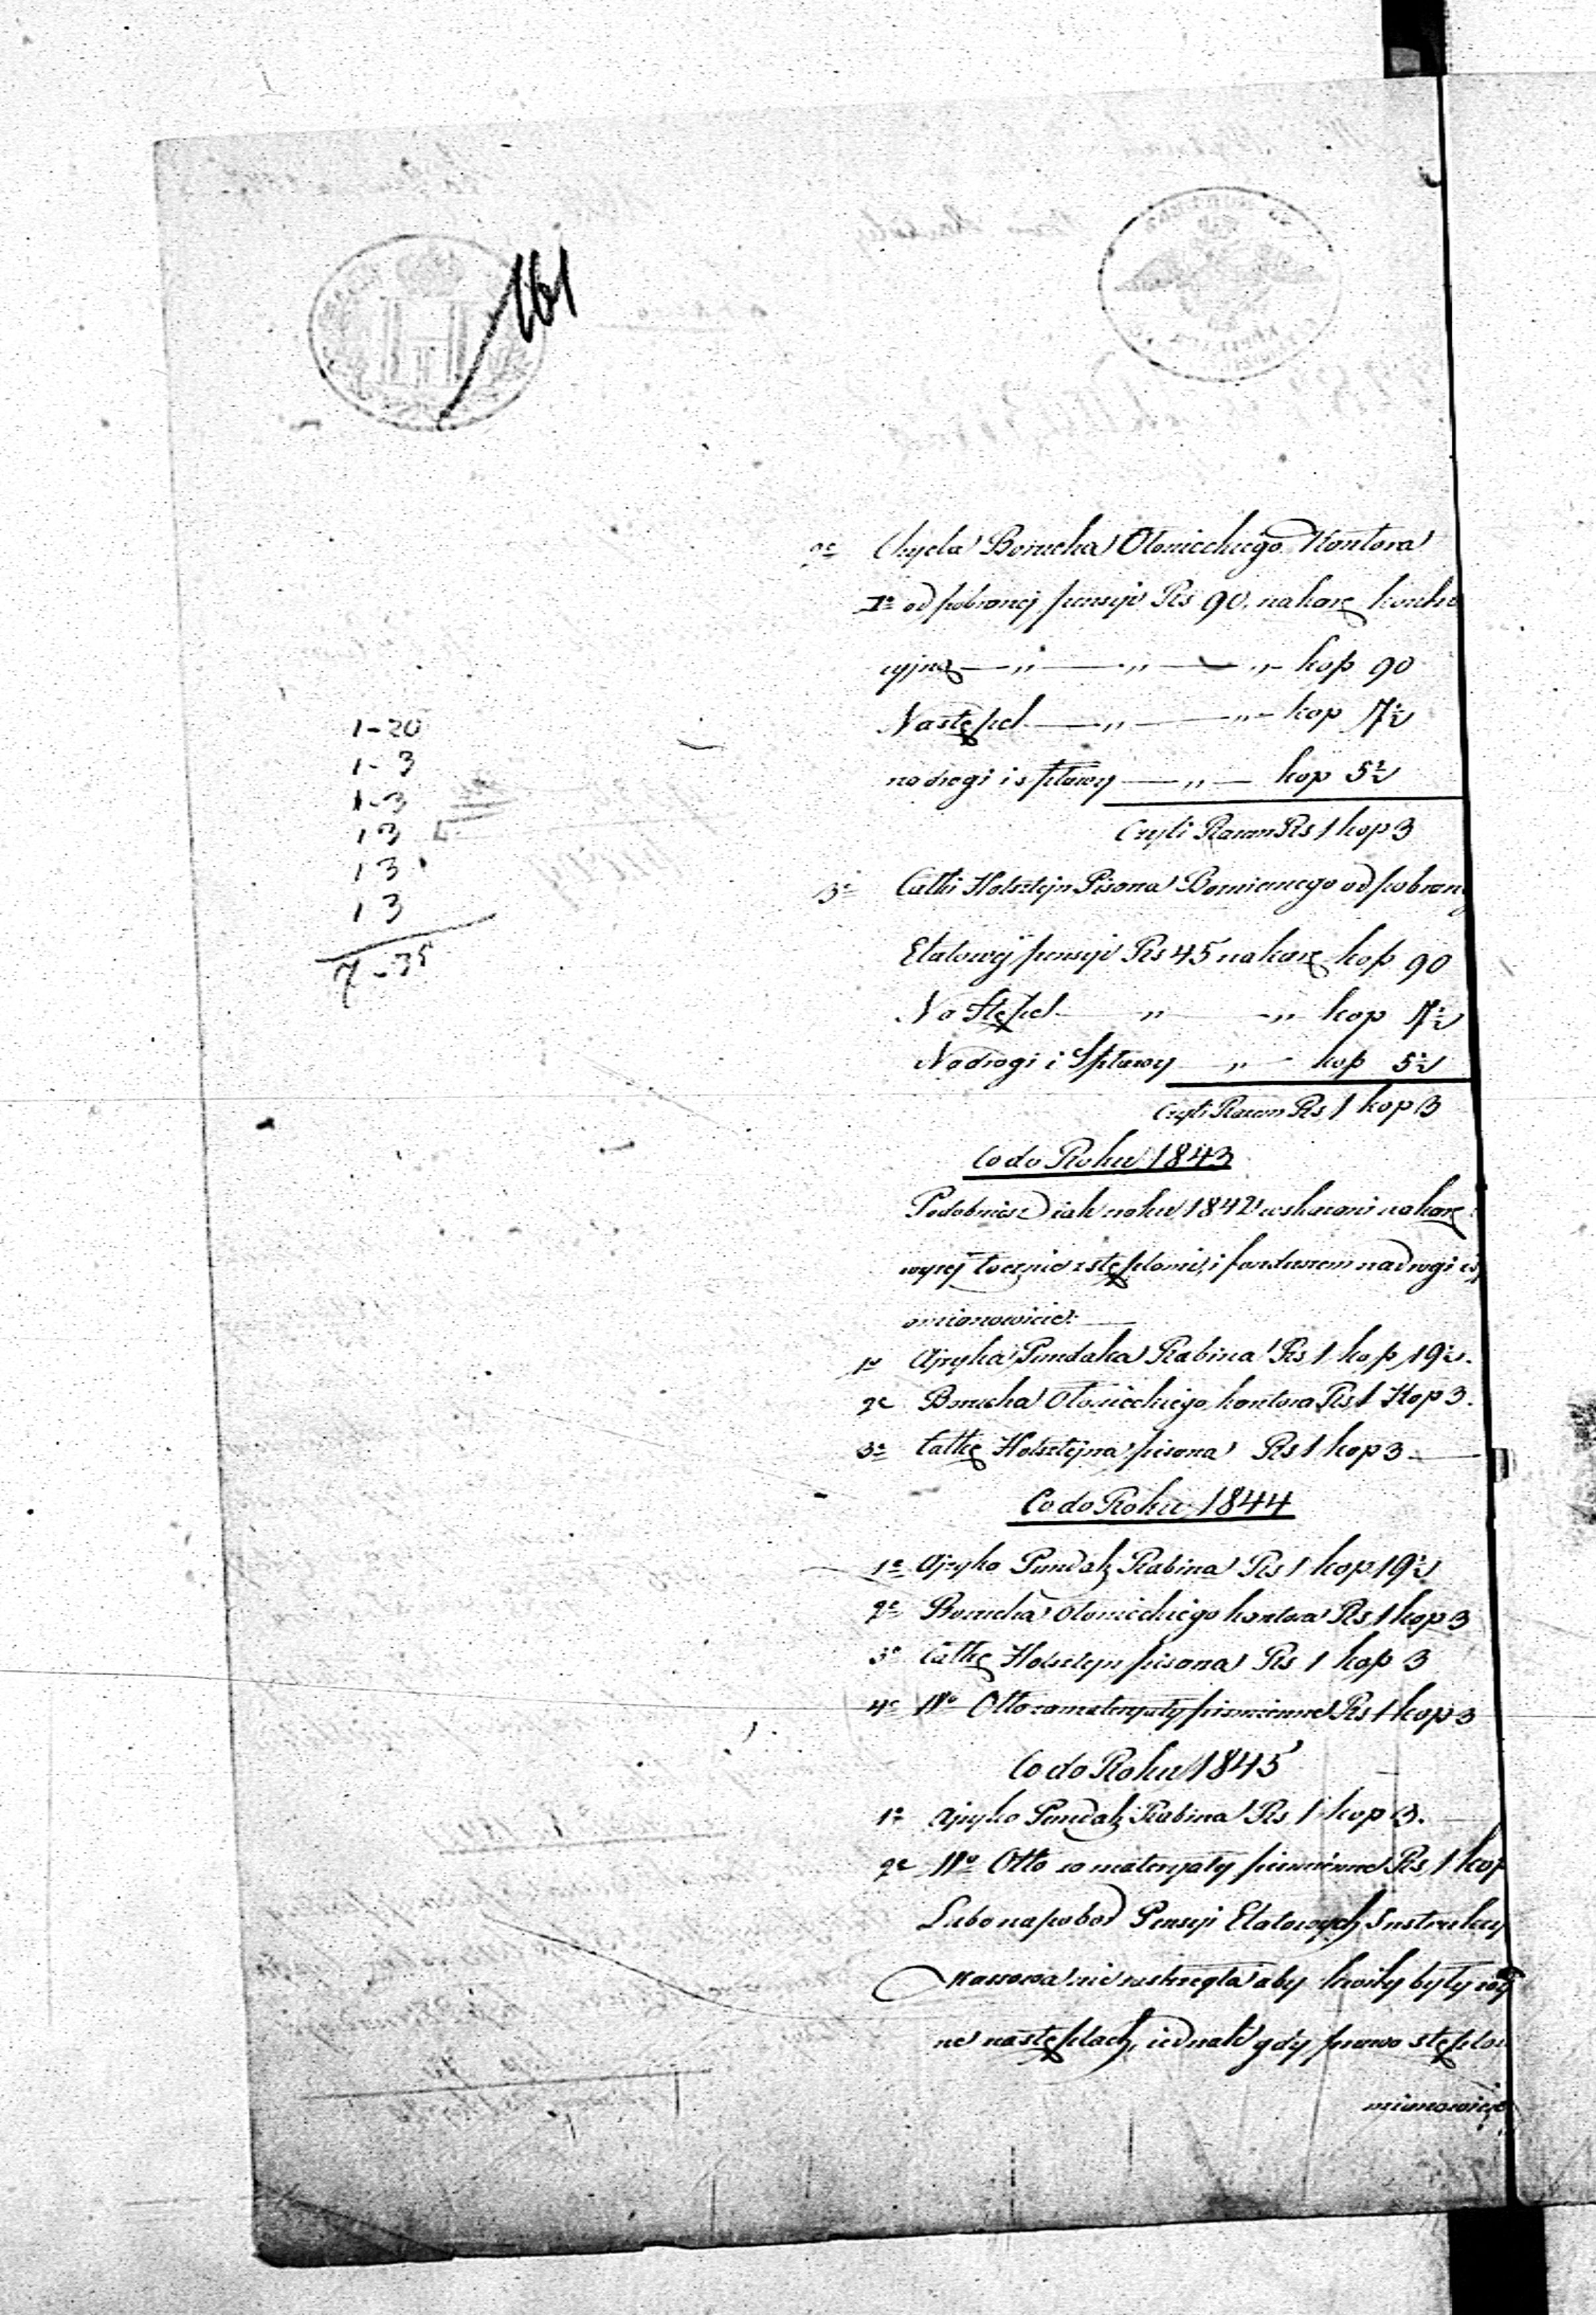 161
1-20
1-3
1-3
13
13
13
7-35
2e Chyela Borucha Otonieckiego Kantora
1e od pobranej pensyi Rs 90. na karę
cyjną — „ — „ — „ — kop 90
Na stępel — „ — „ — kop 7½
na drogi i spławy — „ — kop 5½
Czyli Razem Rs 1 kop 3
3e Całki Holsztejn Pisarza od pobranej
Etatowej pensyi Rs 45 na karę kop 90
Na Stępel — „ — „ kop 7½
Na drogi i Spławy — „ — kop 5½
Czyli Razem Rs 1 kop 3
Co do Roku 1843
Podobnież iak roku 1842 wskazani na karę
wyżej łącznie z stęplami, i funduszem na drogi i
mianowicie:
1e Ajzyka Pundaka Rabina Rs 1 kop 19½.
2e Borucha Otonieckiego kantora Rs 1 Kop 3.
3e Całkę Holsztejna pisarza Rs 1 kop 3 —
Co do Roku 1844
1e Ajzyka Pundak Rabina Rs 1 kop 19½
2e Borucha Otonieckiego kantora Rs 1 kop 3
3e Całkę Holsztejn pisarza Rs 1 kop 3
4e Wo Otto za materyały piśmienne Rs 1 kop 3
Co do Roku 1845
1e Ajzyka Pundak Rabina Rs 1 kop 3.
2e Wo Otto za materyały piśmienne Rs 1 kop
Lubo na pobor Pensyi Etatowych Instrukcy
Kassowa nie zastrzegła aby kwity były
ne na stęplach, iednak gdy prawo
mianowicie